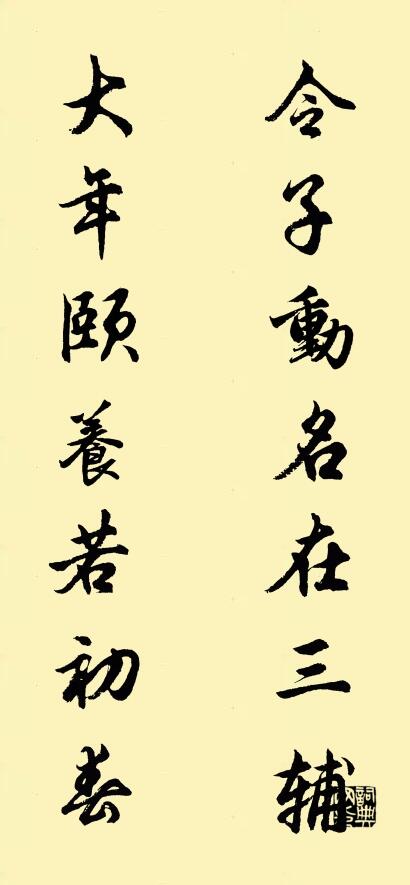 令子動名在三辅
大年頤養若初春